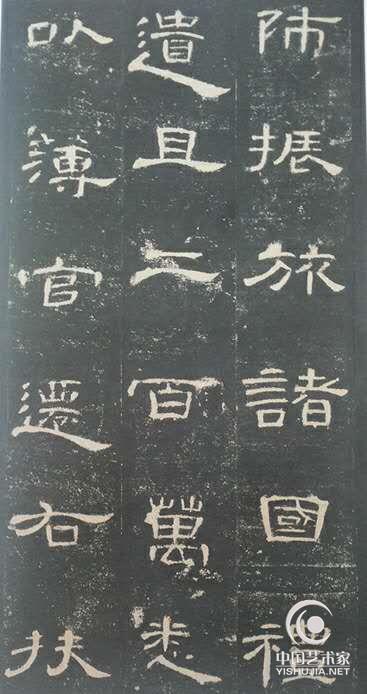 師振旅諸國禮
遺且二百萬悉
以薄官遷右扶
中国艺术家
YISHUJIA.NET